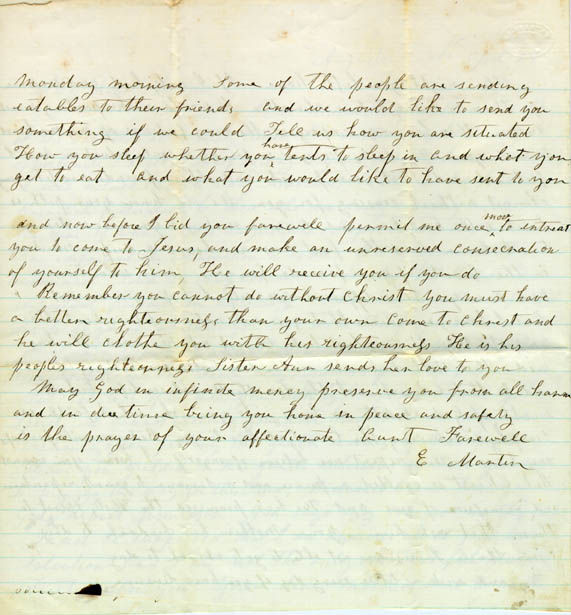 Monday morning Some of the people are sending
eatables to their friends and we would like to send you
something if we could Tell us how you are situated
How you sleep whether you have tents to sleep in and what you
get to eat and what you would like to have sent to you
and now before I bid you farewell permit me once more to intreat
you to come to Jesus, and make an unreserved consecration
of yourself to him, He will receive you if you do
Remember you cannot do without Christ you must have
a better righteousness than your own Come to Christ and
he will clothe you with his righteousness He is his
peoples righteousness Sister Ann sends her love to you
May God in infinite mercy preserve you from all harm
and in due time bring you home in peace and safety
is the prayer of your affectionate Aunt Farewell
E Martin